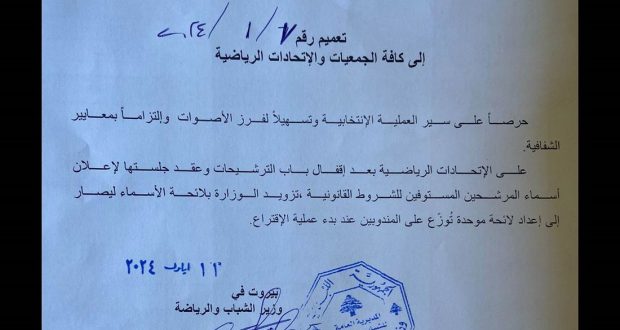 تعميم رقم ٢٠٢٤/١/٧
إلى كافة الجمعيات والإتحادات الرياضية
حرصاً على سير العملية الإنتخابية وتسهيلاً لفرز الأصوات وإلتزاماً بمعايير
الشفافية.
على الإتحادات الرياضية بعد إقفال باب الترشيحات وعقد جلستها لإعلان
أسماء المرشحين المستوفين للشروط القانونية ،تزويد الوزارة بلائحة الأسماء ليصار
إلى إعداد لائحة موحدة تُوزّع على المندوبين عند بدء عملية الإقتراع.
١١ ايلول ٢٠٢٤
بيروت في
وزير الشباب والرياضة
المديرية العامة